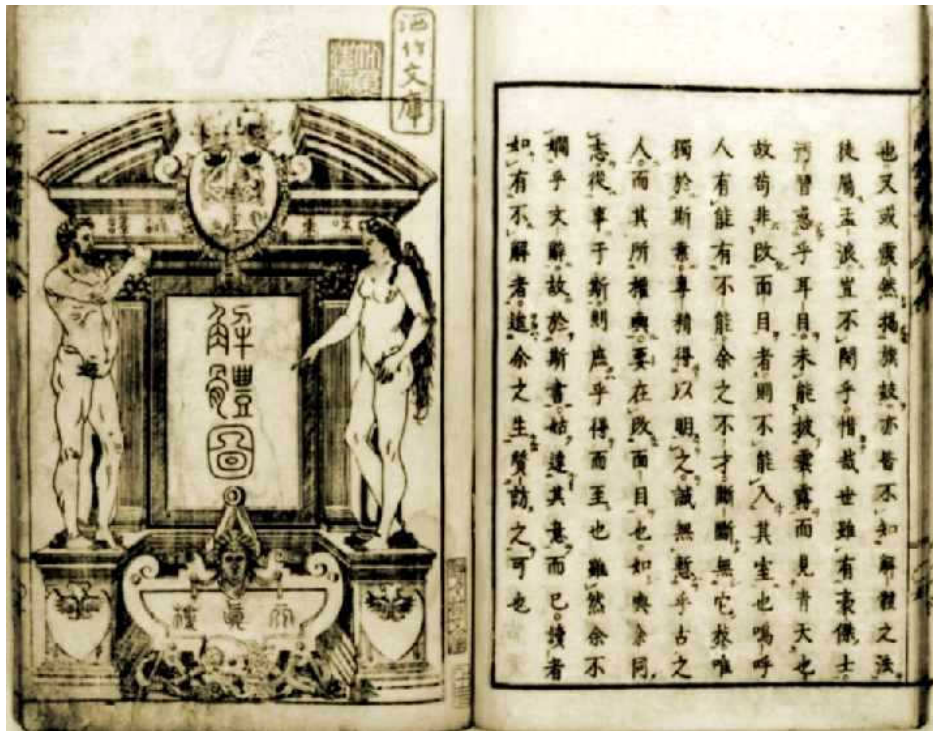 也又或震然揭旗鼓亦皆不知解體之法
徒屬孟浪豈不聞乎惜哉世雖有豪傑士
污習惑乎耳目未能披雲霧而見青天也
故苟非改面目者則不能入其室也嗚呼
人有能有不能余之不才斷斷無它技唯
獨於斯業專精得以明之誠無慙乎古之
人而其所權輿要在改面目也如與余同
志從事于斯則庶乎得而至也雖然余不
嫻乎文辭故於斯書姑達其意而已讀者
如有不解者逮余之生訪之可也
酒竹文庫
解體圖
天眞樓